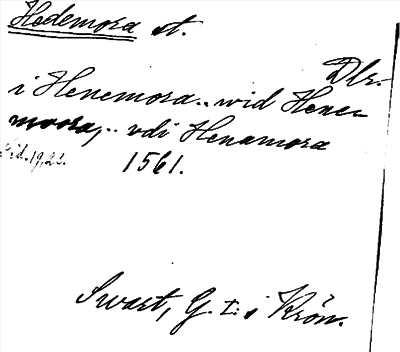 Hedemora st.
Dlr.
i Henemora.. wid Hene-
moora,.. vdi Henamora
1561.
Swart, G. I:s Krön.